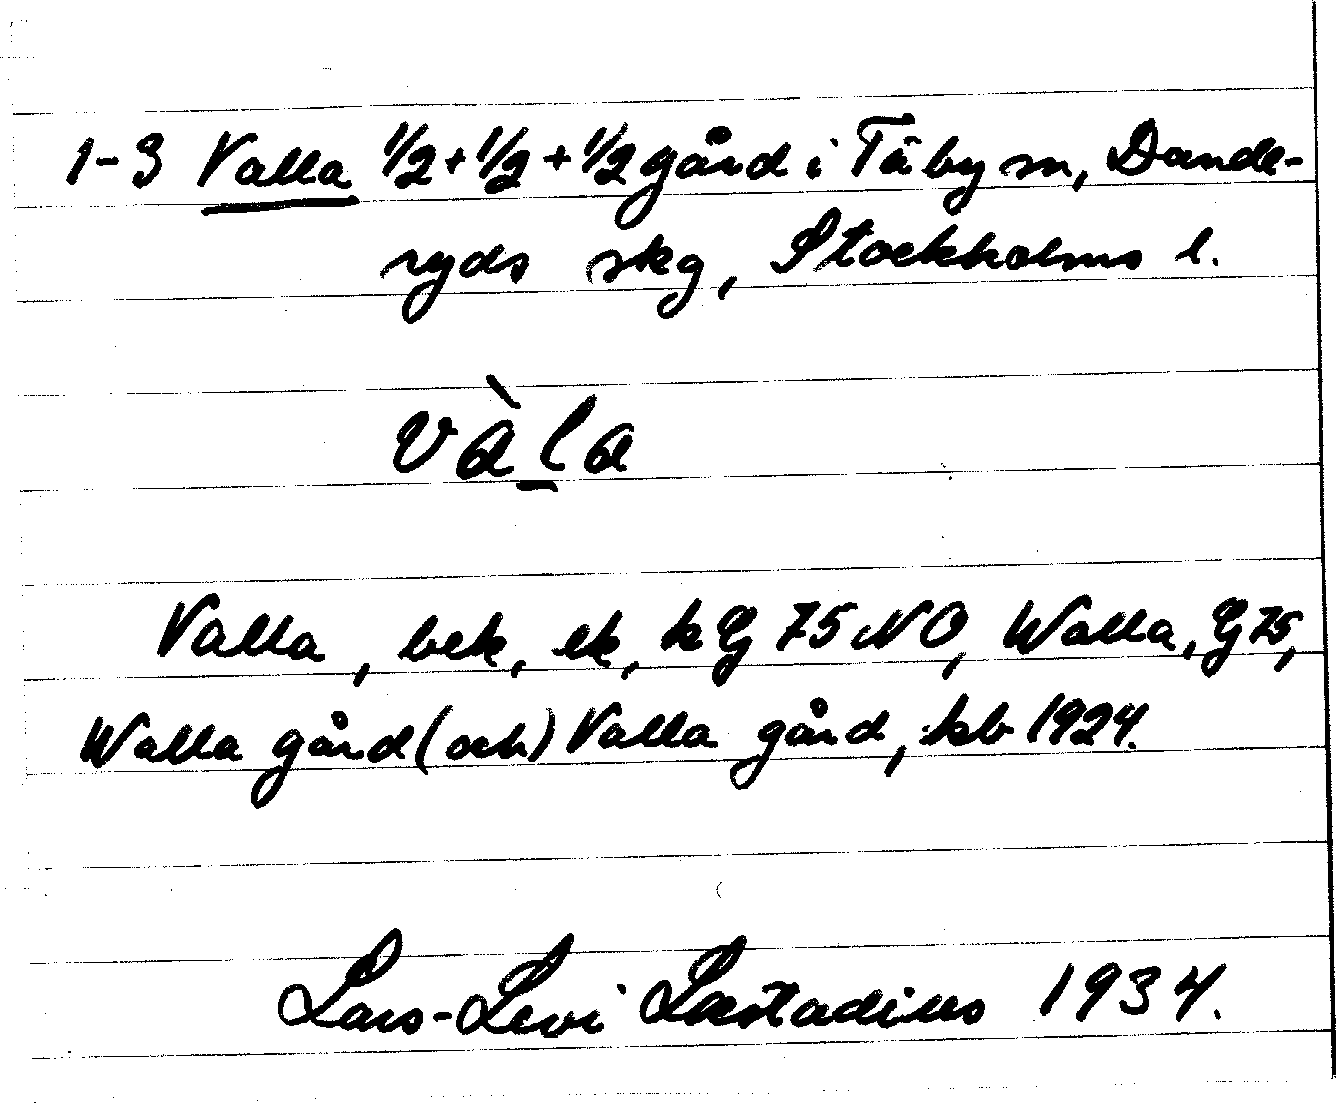 1-3 Valla 1/2+1/2+1/2 gård i Täby sn, Dande-
ryds skg, Stockholms l.
vàl̲a
Valla, bek, ek, kG 75 NO, Walla, G 75,
Walla gård (och) Valla gård, kb 1924.
Lars-Levi Læstadius 1934.